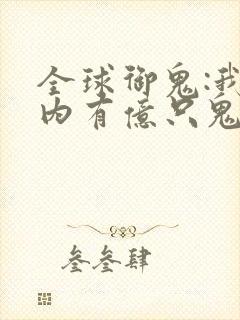 全球御鬼:我
内有億只鬼
叁叁肆